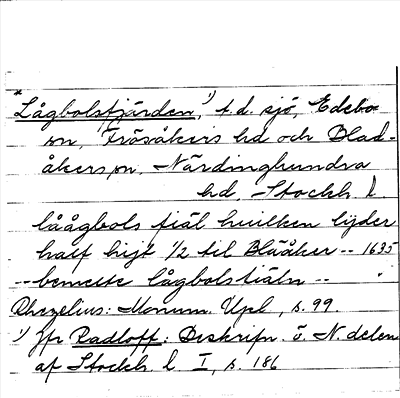 *
Lågbolsfjärden,¹⁾ t.d. sjö, Edebo
sn, Frösåkers hd och Blad-
åkers sn, Närdinghundra
hd, Stockh. l.
låågbols fiäl huilken lijder
half hijt 1/2 til Blååker -- 1635
-- bemelte lågbolsfiäln --
Rhezelius: Monum. Upl., s. 99.
¹⁾ Jfr Radloff: Beskrifn. ö. N. delen
af Stockh. l. I, s. 186